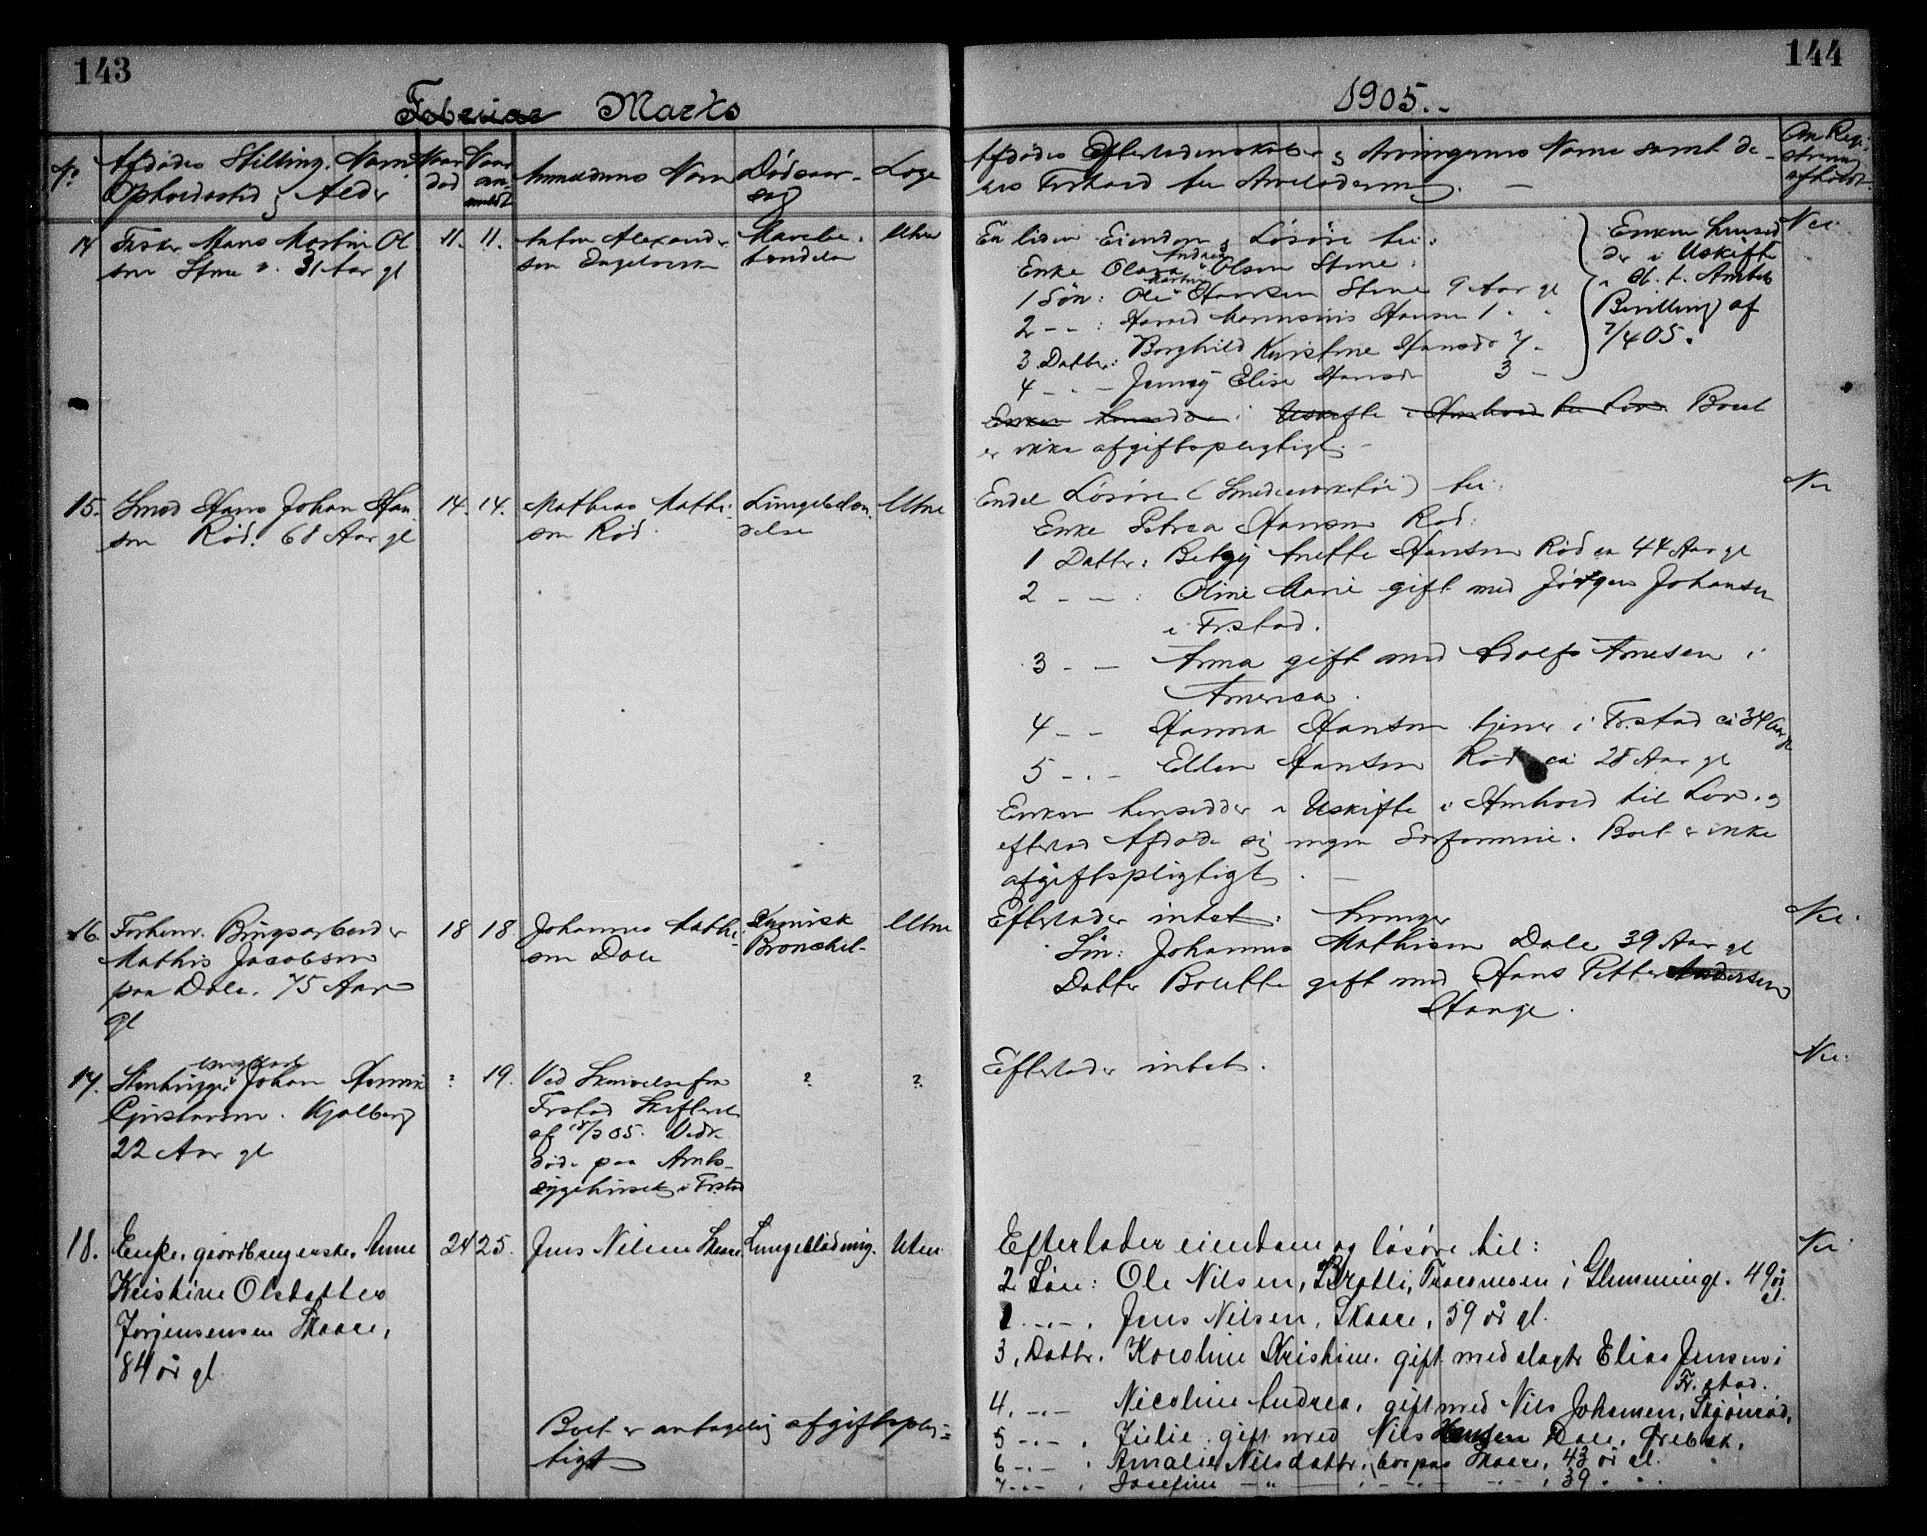 143
Februar Marts
No
Afdødes Stilling, Navn,
Opholdssted & Alder
Naar
død
Naar
an-
meldt
Anmelderens Navn
Dødsaar-
sag
Læge
14
Fisker Hans Martin Ol
sen Stene 31 Aar gl
11. 11.
Anton Alexander
sen Engelsvik
Mavebe-
tændelse
Uten
15.
Smed Hans Johan Han
sen Rød. 68 Aar gl
14. 14.
Mathias Mathi-
sen Rød.
Lungebetæn-
delse
Uten
16.
Forhenv. Brugsarbeider
Mathis Jacobsen
paa Dale. 75 Aar
gl
18 18
Johannes Mathi-
sen Dale
Kronisk
Bronchit
Uten
17.
ungkarl
Stenhugger Johan Henrik
Kjølberg
22 Aar gl
? 19.
Ved Skrivelse fra
Frstad Skifteret
af 18/3 05. Vedk.
døde paa Amts-
sygehuset i Frstad
?
?
18.
Enke, gaardbrugerske, Anne
Kristine Olsdatter
Jørgensensen Skaare,
84 år gl.
24 25.
Jens Nilsen Skaare
Lungeblödning.
Uten
Boet er antagelig afgiftsplig-
tigt
144
1905.-
Afdødes Efterladenskaber & Arvingernes Navne samt de-
res Forhold til Arveladeren. —
Om Regi-
strering
afholdt
En liden Eiendom & Løsøre til:
Enke Olava Andrea Olsen Stene:
1 Søn: Ole Martin Hansen Stene 9 Aar gl
2 - - : Harald Hansen 1 " "
3 Datter: Borghild Kristine Hansdr 7 -
4 - . - Jenny Elise Hansdr 3 —
Enken hensid
der i Uskifte
i H. t. Amtets
Bevilling af
7/4 05.
Nei
Enken hensidder i Uskifte i Henhold til Lov. Boet
er ikke afgiftspligtigt. -
Endel Løsøre (Smedeverktøi) til:
Enke Petrea Hansen Rød:
1 Datter: Betzy Anette Hansen Rød ca 44 Aar gl
2 - — : Oline Marie gift med Jørgen Johansen
i Fr.stad.
3 - — Anna gift med Adolf Arnesen i
America.
4 - - Hanna Hansen tjener i Fr.stad ca 34 Aar gl
5 - . - Ellen Hansen Rød ca 28 Aar gl
Enken hensidder i Uskifte i Henhold til Lov. og
efterlod Afdøde sig ingen Særformue. Boet er ikke
afgiftspligtigt. —
Nei
Efterlader intet. Arvinger
Søn: Johannes Mathisen Dale 39 Aar gl
Datter Bolette gift med Hans Petter Andersen
Hauge.
Nei.
Efterlader intet.
Nei.
Efterlader eiendom og løsøre til:
2 Søn: Ole Nilsen, i Glemminge. 49 år
gl.
1 . - . - . Jens Nilsen, Skaare, 59 år gl.
3, Datter. Karoline Kristine. gift med slagter Elias Jensen i
Fr.stad.
4. - . - Nicoline Andrea, gift med Nils Johansen,
5 - . - . Julie gift med Nils Hansen Dale,
6 - . - . Amalie Nilsdatter, bor paa Skaare, 43 år gl.
7 - . - . Josefine — " — , - . - . - , 39 . .
Nei